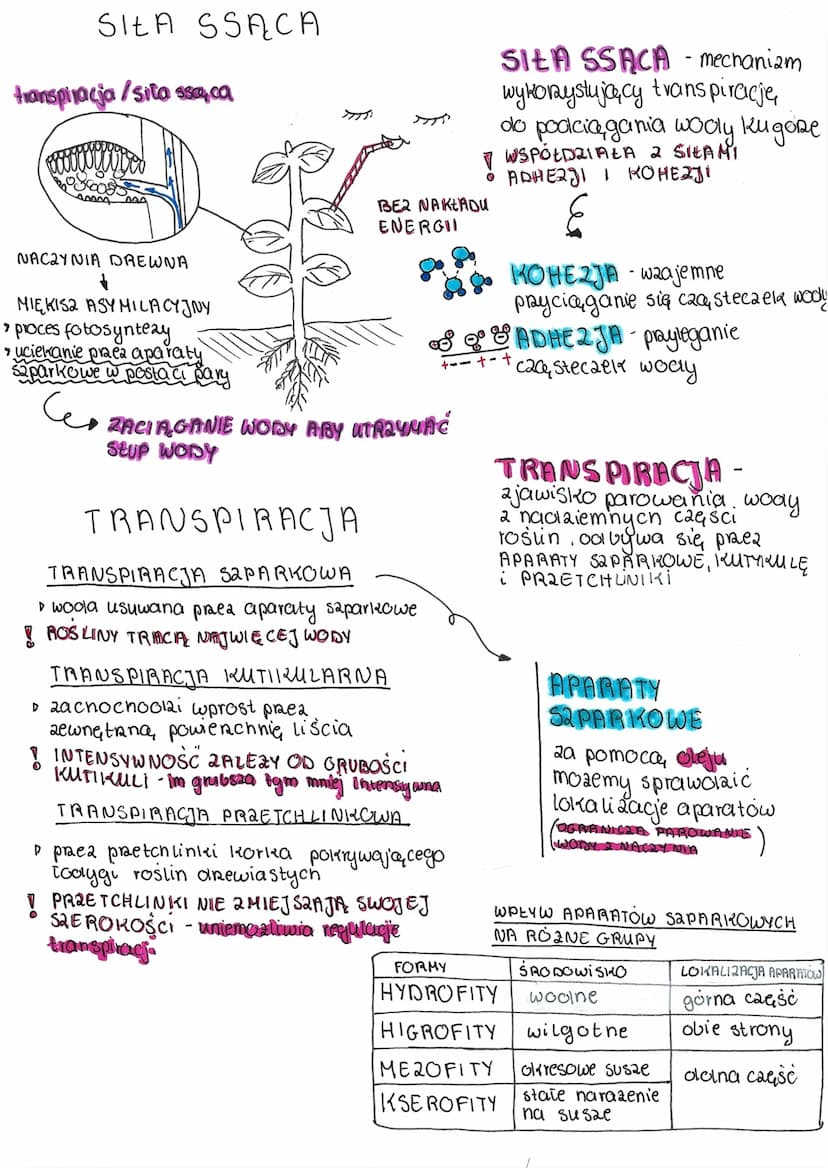 SIŁA SSĄCA
transpiracja / siła ssąca
NACZYNIA DREWNA
MIĘKISZ ASYMILACYJNY
proces fotosyntezy
uciekanie przez aparaty
szparkowe w postaci pary
ZACIĄGANIE WODY ABY UTRZYMAĆ
SŁUP WODY
BEZ NAKŁADU
ENERGII
SIŁA SSĄCA - mechanizm
wykorzystujący transpirację
do podciągania wody ku górze
! WSPÓŁDZIAŁA Z SIŁAMI
ADHEZJI I KOHEZJI
KOHEZJA - wzajemne
przyciąganie się cząsteczek wody
ADHEZJA - przyleganie
cząsteczek wody
TRANSPIRACJA -
zjawisko parowania wody
z nadziemnych części
roślin, odbywa się przez
APARATY SZPARKOWE, KUTYKULĘ
i PRZETCHLINIKI
TRANSPIRACJA
TRANSPIRACJA SZPARKOWA
woda usuwana przez aparaty szparkowe
! ROŚLINY TRACĄ NAJWIĘCEJ WODY
TRANSPIRACJA KUTIKULARNA
zachochodzi wprost przez
zewnętrzną powierzchnię liścia
! INTENSYWNOŚĆ ZALEŻY OD GRUBOŚCI
KUTIKULI - im grubsza tym mniej intensywna
TRANSPIRACJA PRZETCHLINKOWA
przez przetchlinki korka pokrywającego
łodygi roślin drzewiastych
! PRZETCHLINKI NIE ZMIEJSZAJĄ SWOJEJ
SZEROKOŚCI - uniemożliwia regulację
transpiracji
APARATY
SZPARKOWE
za pomocą oleju
możemy sprawdzić
lokalizacje aparatów
(OGRANICZA PAROWANIE
WODY Z NACZYNIA)
WPŁYW APARATÓW SZPARKOWYCH
NA RÓŻNE GRUPY
FORMY ŚRODOWISKO LOKALIZACJA APARATÓW
HYDROFITY wodne górna część
HIGROFITY wilgotne obie strony
MEZOFITY okresowe susze dolna część
KSEROFITY stałe narażenie
na susze